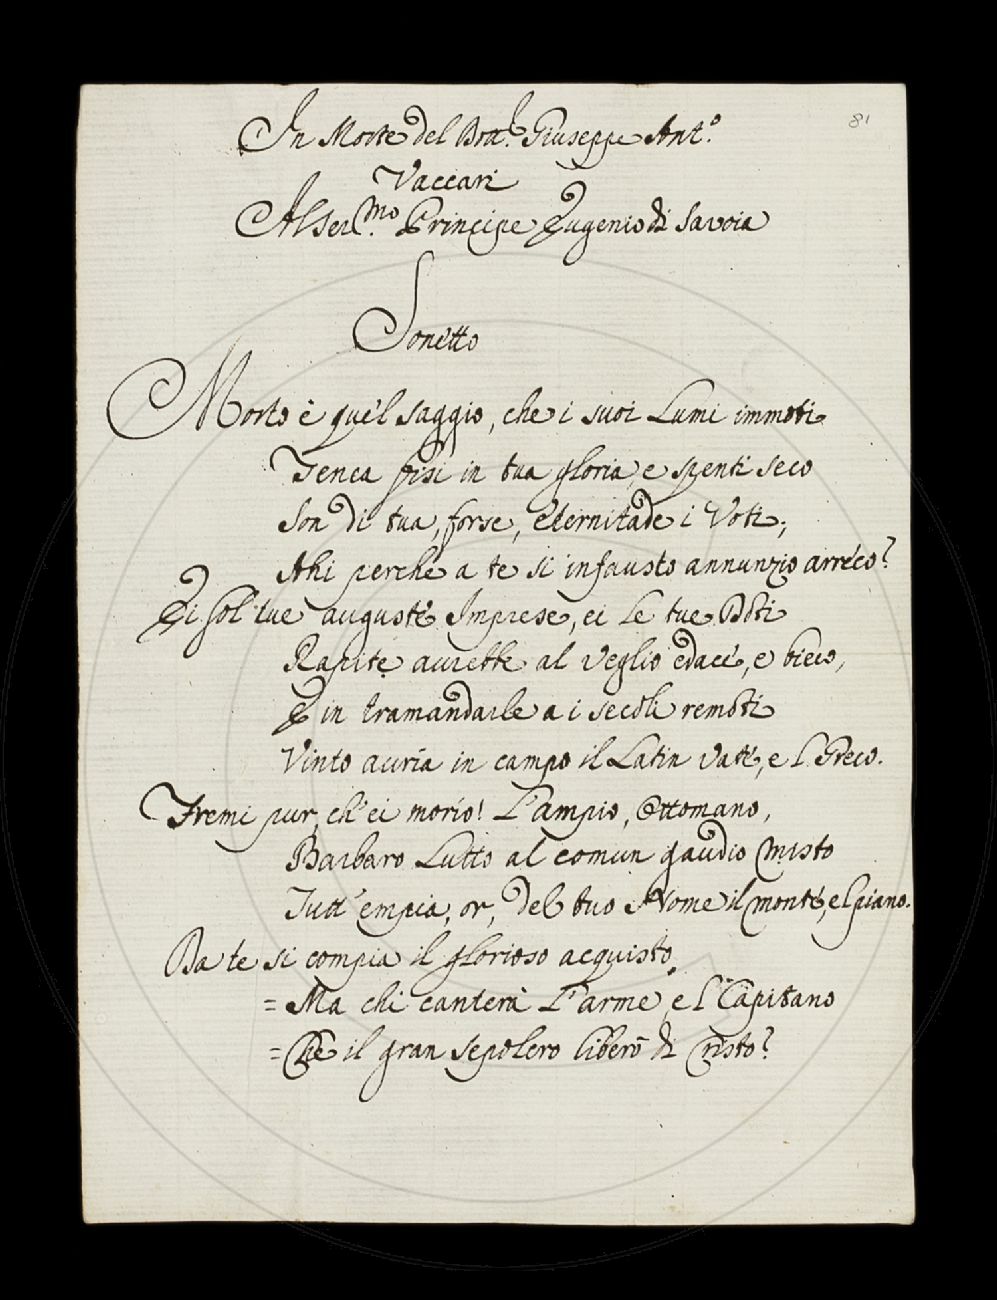 81
In Morte del Dott.r Giuseppe Ant.o
Vaccari
Al Ser.mo Principe Eugenio di Savoia
Sonetto
Morto è quel saggio, che i suoi Lumi immoti
Tenea fisi in tua gloria, e spenti seco
Son di tua, forse, eternitade i Voti;
Ahi perchè a te sì infausto annunzio arreco?
Ei sol tue auguste Imprese, ei le tue Doti
Rapite aurebbe al Veglio edace, e bieco,
E in tramandarle a i secoli remoti
Vinto auria in campo il Latin Vate, e l Greco.
Fremi pur, ch' ei morìo! L'ampio, Ottomano,
Barbaro Lutto al comun gaudio misto
Tutt' empia, or, del tuo Nome il monte, e l piano.
Da te si compia il glorioso acquisto
= Ma chi canterà L'arme, e l' Capitano
= Che il gran sepolcro liberò di Cristo?